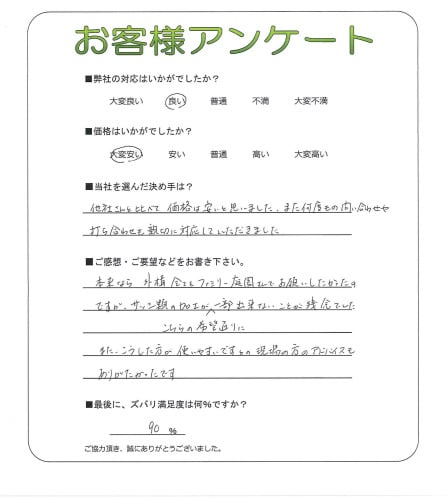 お客様アンケート
■弊社の対応はいかがでしたか？
大変良い 良い 普通 不満 大変不満
■価格はいかがでしたか？
大変安い 安い 普通 高い 大変高い
■当社を選んだ決め手は？
他社さんと比べて 価格は安いと思いました、また何度もの問い合わせや
打ち合わせも親切に対応していただきました
■ご感想・ご要望などをお書き下さい。
本来なら 外構 全てをファミリー庭園さんでお願いしたかったの
ですが、サッシ類の加工が 一部出来ないことが残念でした
こちらの希望通りに
また、こうした方が 使いやすいですよの 現場の方のアドバイスも
ありがたかったです
■最後に、ズバリ満足度は何%ですか？
90 %
ご協力頂き、誠にありがとうございました。